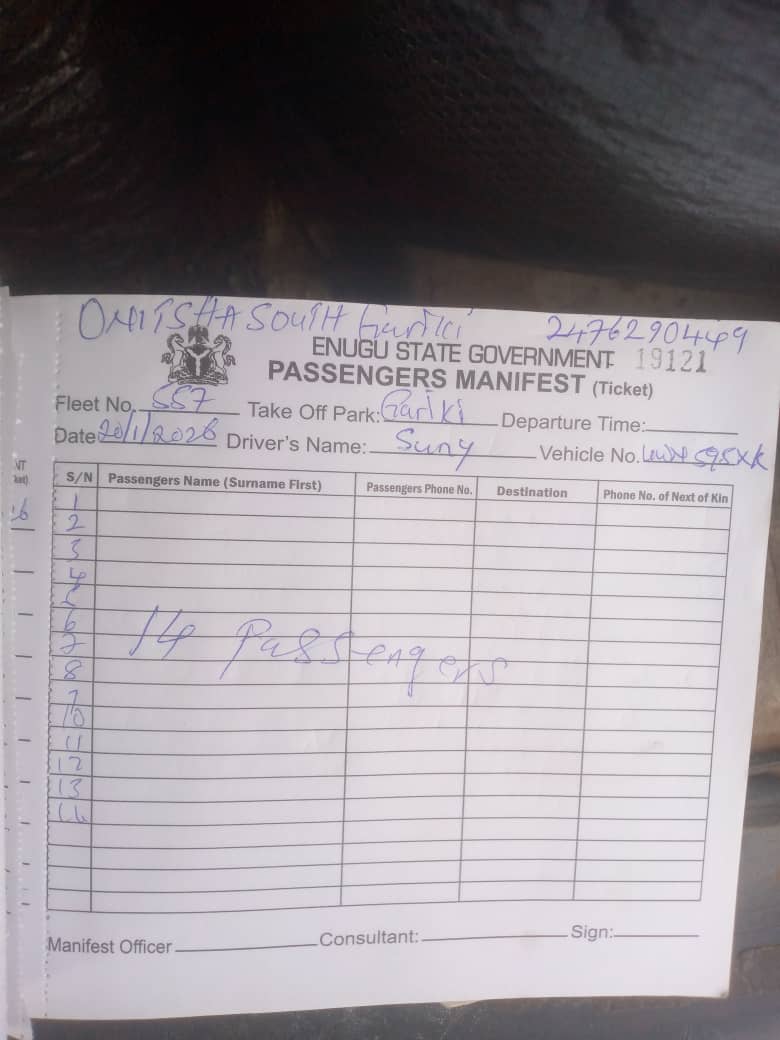 ONITSHA SOUTH Gariki 2476290449
ENUGU STATE GOVERNMENT 19121
PASSENGERS MANIFEST (Ticket)
Fleet No. 557 Take Off Park: Gariki Departure Time:
Date 20/1/2026 Driver's Name: Suny Vehicle No. 595XK
S/N Passengers Name (Surname First) Passengers Phone No. Destination Phone No. of Next of Kin
1
2
3
4
5
6
7
8
9
10
11
12
13
14
14 Passengers
Manifest Officer Consultant: Sign: